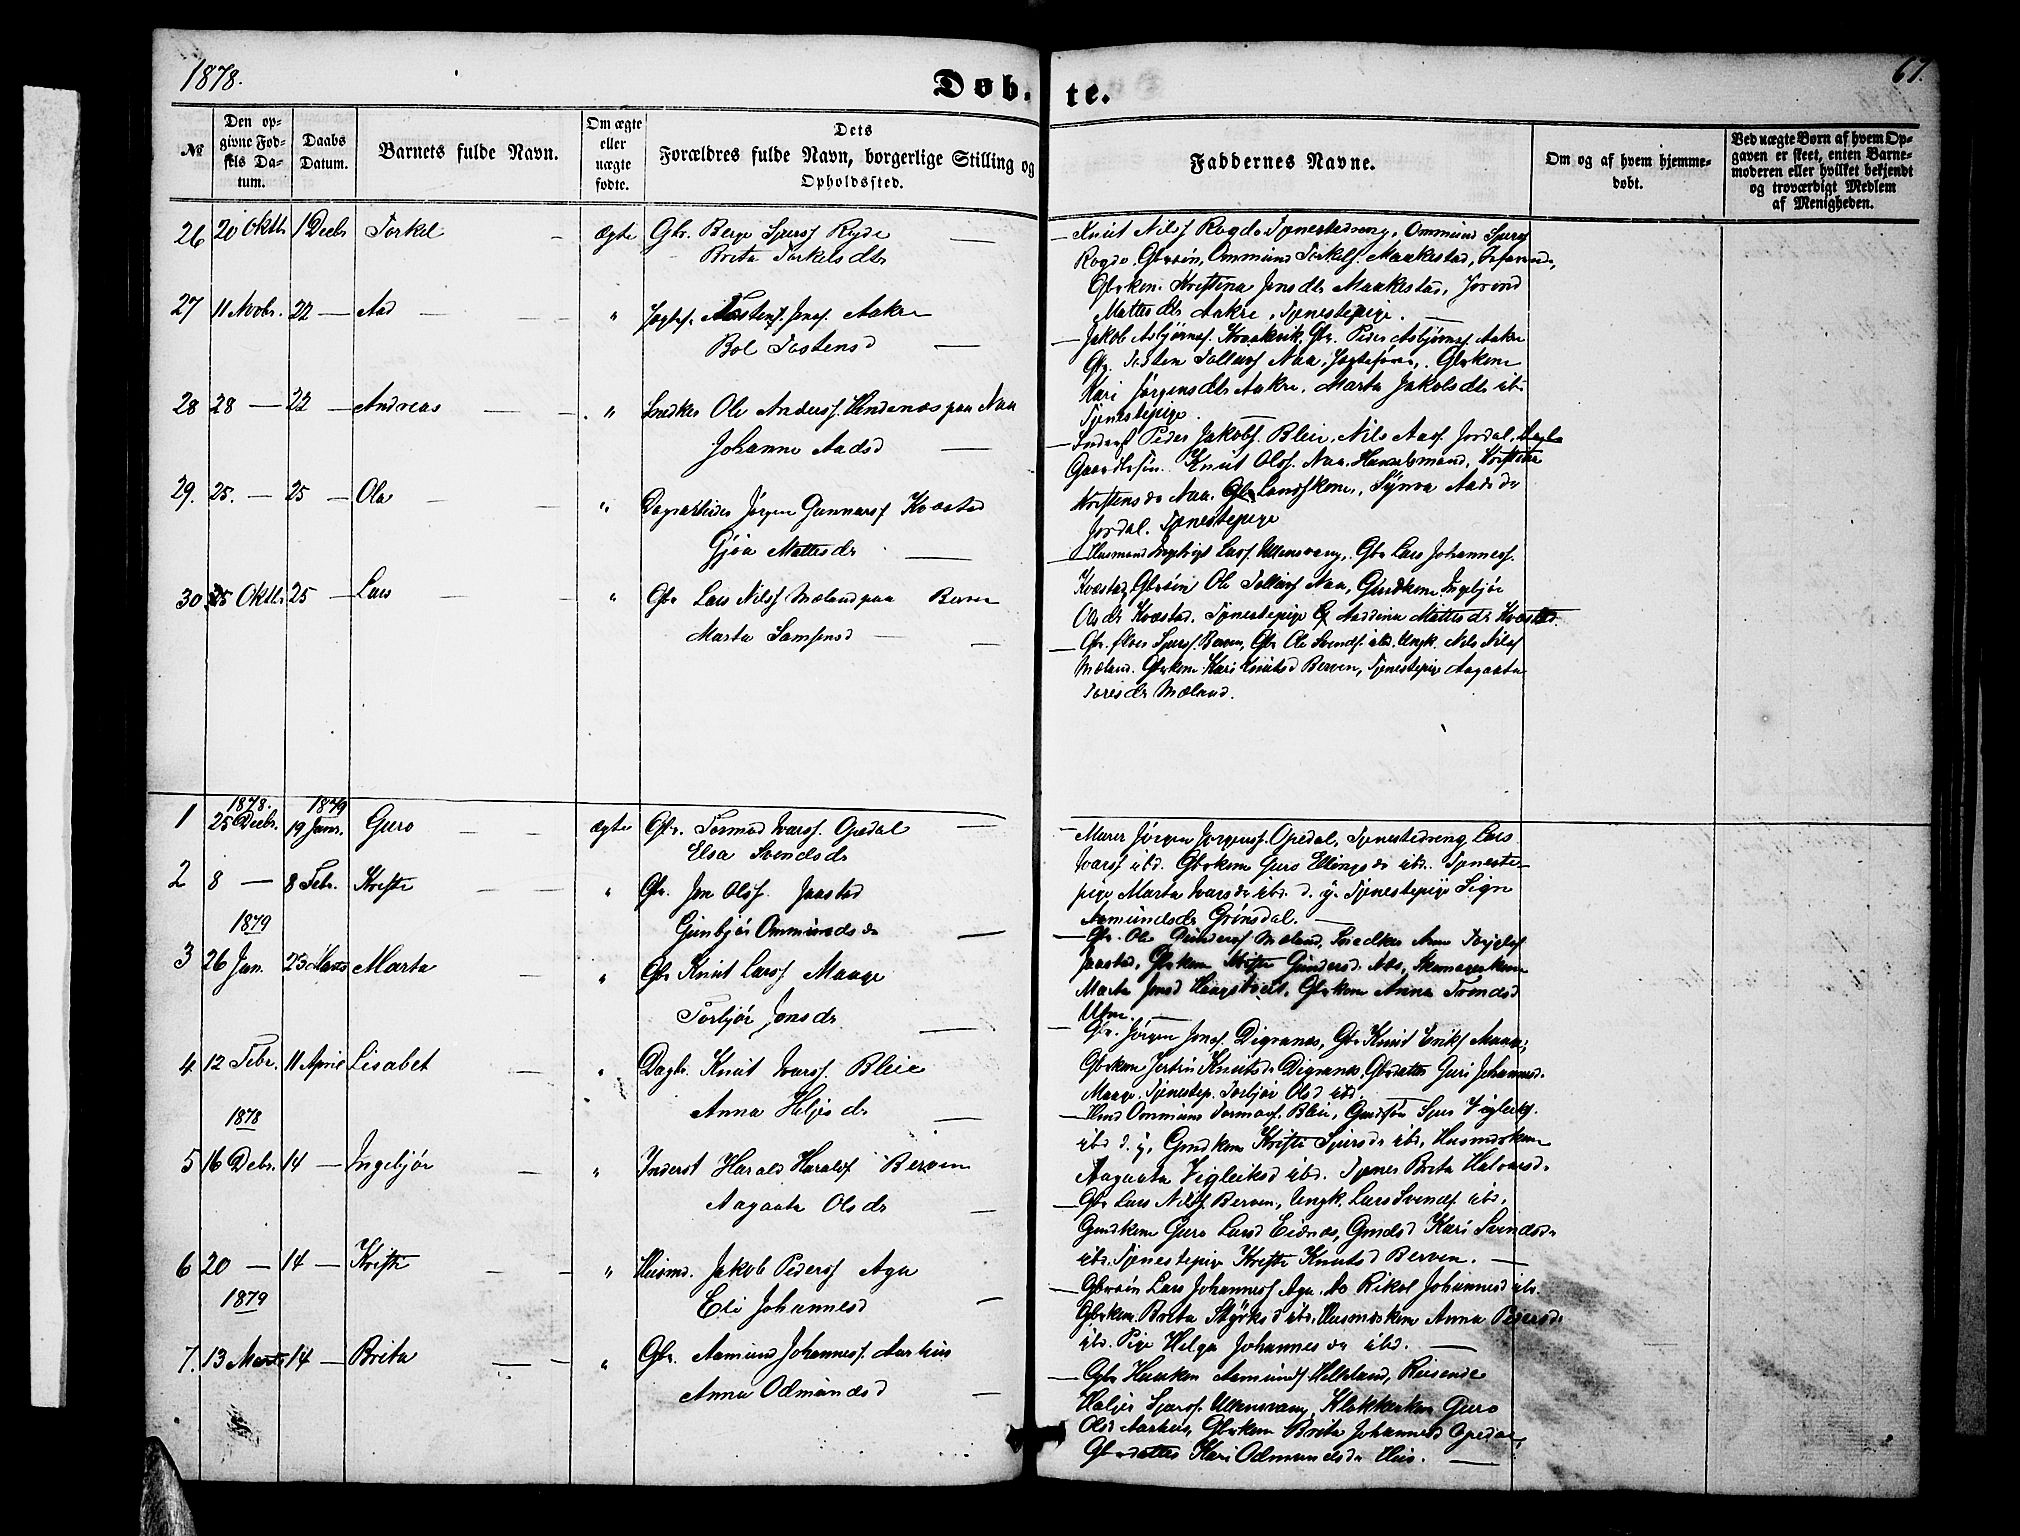 1878.
Døb-
te.
67.
№
Den op-
givne Fød-
sels Da-
tum.
Daabs
Datum.
Barnets fulde Navn.
Om ægte
eller
uægte
fødte.
Dets
Forældres fulde Navn, borgerlige Stilling og
Opholdssted.
Faddernes Navne.
Om og af hvem hjemme-
døbt.
Ved uægte Børn af hvem Op-
gaven er skeet, enten Barne-
moderen eller hvilket bekjendt
og troværdigt Medlem
af Menigheden.
26 20 Oktbr 1 Decbr Torkel — ægte Gbr. Berge Sjurss Rogde —
Brita Torkelsdtr
— Knut Nilss Rogde Tjenestedreng, Ommund Sjurss
Rogde Gbrsøn, Ommund Torkelss. Maakestad,
Gbrkon. Kristina Jonsdtr Maakestad, Jorond
Mattesdtr Aakre, Tjenestepige. —
27 11 Novbr. 22 — Aad — — " Jonss. Aakre
Bol Tostensd —
— Jakob Asbjørnss. Kraakevik, Gbr. Peder Asbjørnss Aakre
Gbr. Tosten Tollevss Naa, Jagtefører, Gbrkone
Kari Jørgensdtr Aakre, Marta Jakobsdtr ib.
Tjenestepige. —
28 28 — 22 — Andreas — — " Snedker Ole Anderss. Vendenæs paa Naa
Johanne Aadsd —
— Inderst Peder Jakobss. Bleie, Nils Aass. Jordal,
Knut Olss. Naa, Handelsmand,
Kristensdr Naa, Synva Aadsdr
Jordal. Tjenestepige
29. 25. — 25 — Ola — — " Dagarbeider Jørgen Gunnarss Kvæstad
Gjøa Mattesdr —
— Husmand Lass. Ullensvang, Gbr Lars Johanness.
Kvæstad, Gbrsøn Ole Tollevss Naa, Ingebjør
Olsdtr Kvæstad, Tjenestepige Aadvina Mattesdr Kvæstad.
30. 25 Oktbr 25 — Lars — — " Gbr Lars Nilss Mæland paa Berven
Marta Samsonsd — —
— Gbr. Sjurss. Berven, Gbr Ole Svendss. ibd. Ungk. Nils Nilss
Mæland. Gbrkone Kari Knutsd Berven, Tjenestepige Aagaata
Toresdr Mæland.
1878. 1879
1 25 Decbr. 19 Janr. Guro — — ægte Gbr. Tormod Ivarss. Opedal —
Elsa Svendsdr
— Murer Jørgen Jørgenss. Opedal, Tjenestedreng Lars
Ivarss ibd. Gbrkone Guro Ellingsdr ibd. Tjeneste-
pige Marta Ivarsdr ibd. d. y. Tjenestepige Signe
Aamundsdr Grønsdal. —
2 8 — 8 Febr. Kristi — — " Gbr. Jon Olss. Jaastad
Gunbjør Ommundsdr —
— Gbr. Ole Gunderss Mæland, Snedker Arne
Jaastad, Gbrkone Kristi Gundersd. Skomagerkone
Marta Jonsd Haugstvedt, Gbrkone Anna Trondsd
Utne. —
1879
3 26 Jan. 23 Marts Marta — " Gbr Knut Larss Maage
Torbjør Jonsdr —
— Gbr. Jørgen Jonss. Digranes, Gbr Knut Erikss Maage,
Gbrkone Knutsdr Digranes, Gbrdatter Guri Johannesd.
Maage, Tjenestep. Torbjør Olsd ibd. —
4 12 Febr. 11 April Lisabet — " Dagbr. Knut Ivarss. Bleie
Anna Heljesdr —
— Ommund Tormodss. Bleie, Sjur Vigleikss.
ibd d. y. Kristi Sjursdr ibd, Husmdskone
Aagaata Vigleiksd ibd. Tjener Brita Halvarsd.
1878
5 16 Debr. 14 — Ingebjør — " Inderst Harald Haralss Berven
Aagaata Olsdr —
— Gbr Lars Nilss Berven, Ungk. Lars Svendss ibd,
Guro Larsd Eidnes, Kari Svendsdr
ibd. Tjenestepige Kristi Knutsd Berven. —
6 20 — 14 — Kristi — — " Husmd. Jakob Pederss Aga
Eli Johannesd —
— Gbrsøn Lars Johanness Aga, do Rikol Johanness ib.
Gbrkone Brita Styrksd ibd, Husmdskone Anna Pedersdr
ibd. Pige Helga Johannesdr ibd. —
1879
7. 13 Marts 14 — Brita — — " Gbr. Aamund Johanness. Aarhus
Anna Odmundsd —
— Gbr Haaken Aamundss Helleland, Reisende
Heljer Sjurss. Ullensvang, Klokkerkone Guro
Olsd Aarhus, Gbrkone Brita Johannesd Opedal,
Gbrdatter Kari Odmundsdr Hus. —